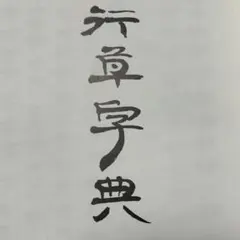 行草字典